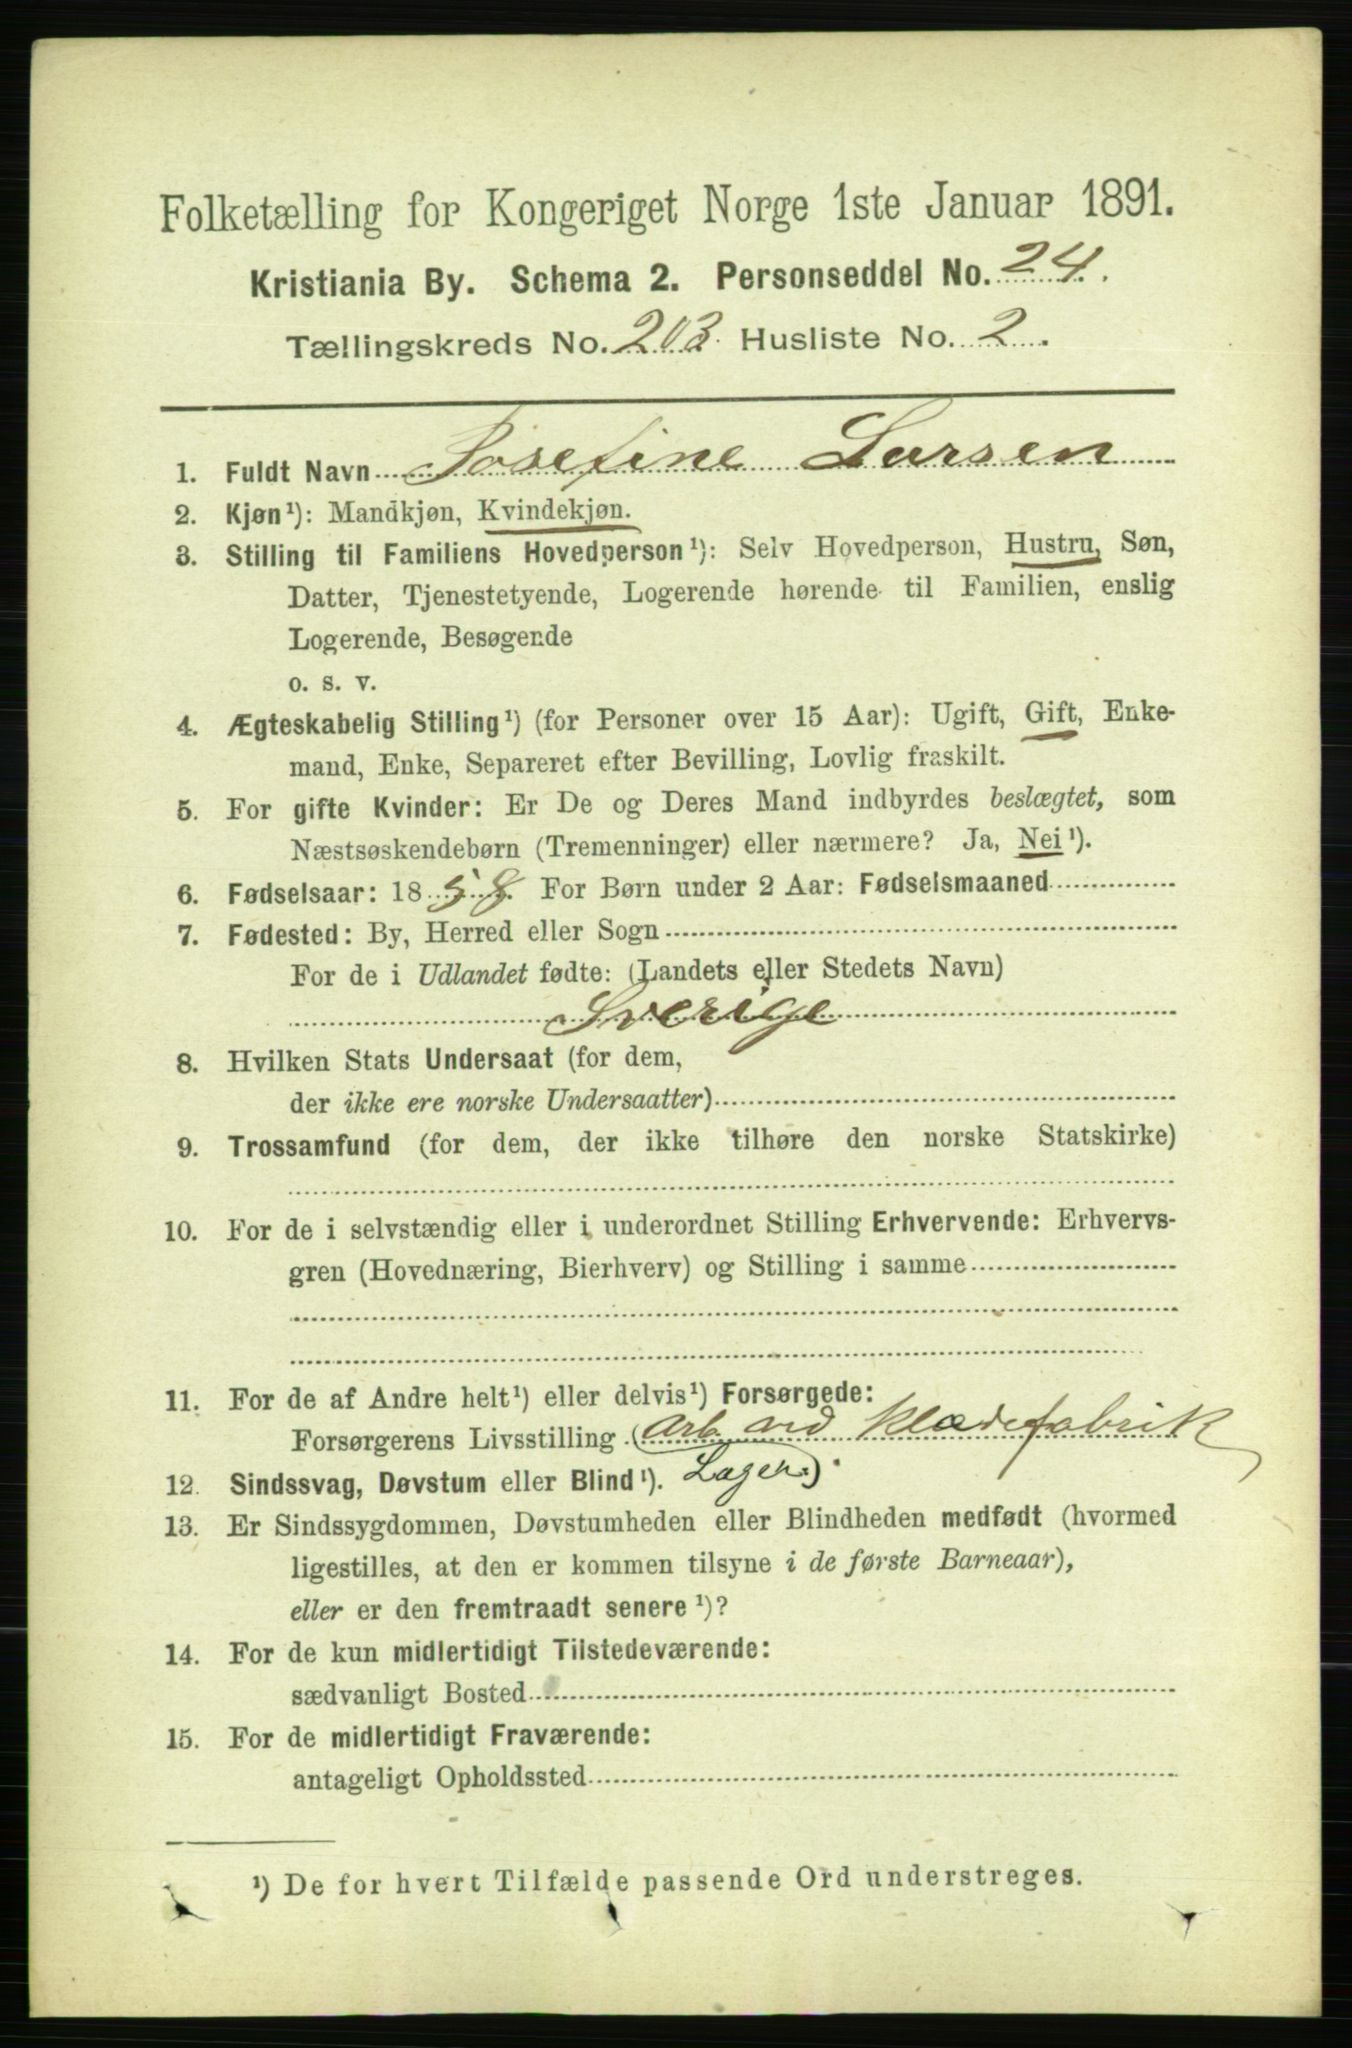 Folketælling for Kongeriget Norge 1ste Januar 1891.
Kristiania By. Schema 2. Personseddel No. 24.
Tællingskreds No. 203 Husliste No. 2.
1. Fuldt Navn Josefine Larsen
2. Kjøn¹): Mandkjøn, Kvindekjøn.
3. Stilling til Familiens Hovedperson¹): Selv Hovedperson, Hustru, Søn,
Datter, Tjenestetyende, Logerende hørende til Familien, enslig
Logerende, Besøgende
o. s. v.
4. Ægteskabelig Stilling¹) (for Personer over 15 Aar): Ugift, Gift, Enke-
mand, Enke, Separeret efter Bevilling, Lovlig fraskilt.
5. For gifte Kvinder: Er De og Deres Mand indbyrdes beslægtet, som
Næstsøskendebørn (Tremenninger) eller nærmere? Ja, Nei¹).
6. Fødselsaar: 1858. For Børn under 2 Aar: Fødselsmaaned
7. Fødested: By, Herred eller Sogn
For de i Udlandet fødte: (Landets eller Stedets Navn)
Sverige
8. Hvilken Stats Undersaat (for dem,
der ikke ere norske Undersaatter)
9. Trossamfund (for dem, der ikke tilhøre den norske Statskirke)
10. For de i selvstændig eller i underordnet Stilling Erhvervende: Erhvervs-
gren (Hovednæring, Bierhverv) og Stilling i samme
11. For de af Andre helt¹) eller delvis¹) Forsørgede:
Forsørgerens Livsstilling (Arb. ved Klædefabrik
12. Sindssvag, Døvstum eller Blind¹). Lager.)
13. Er Sindssygdommen, Døvstumheden eller Blindheden medfødt (hvormed
ligestilles, at den er kommen tilsyne i de første Barneaar),
eller er den fremtraadt senere¹)?
14. For de kun midlertidigt Tilstedeværende:
sædvanligt Bosted
15. For de midlertidigt Fraværende:
antageligt Opholdssted
¹) De for hvert Tilfælde passende Ord understreges.